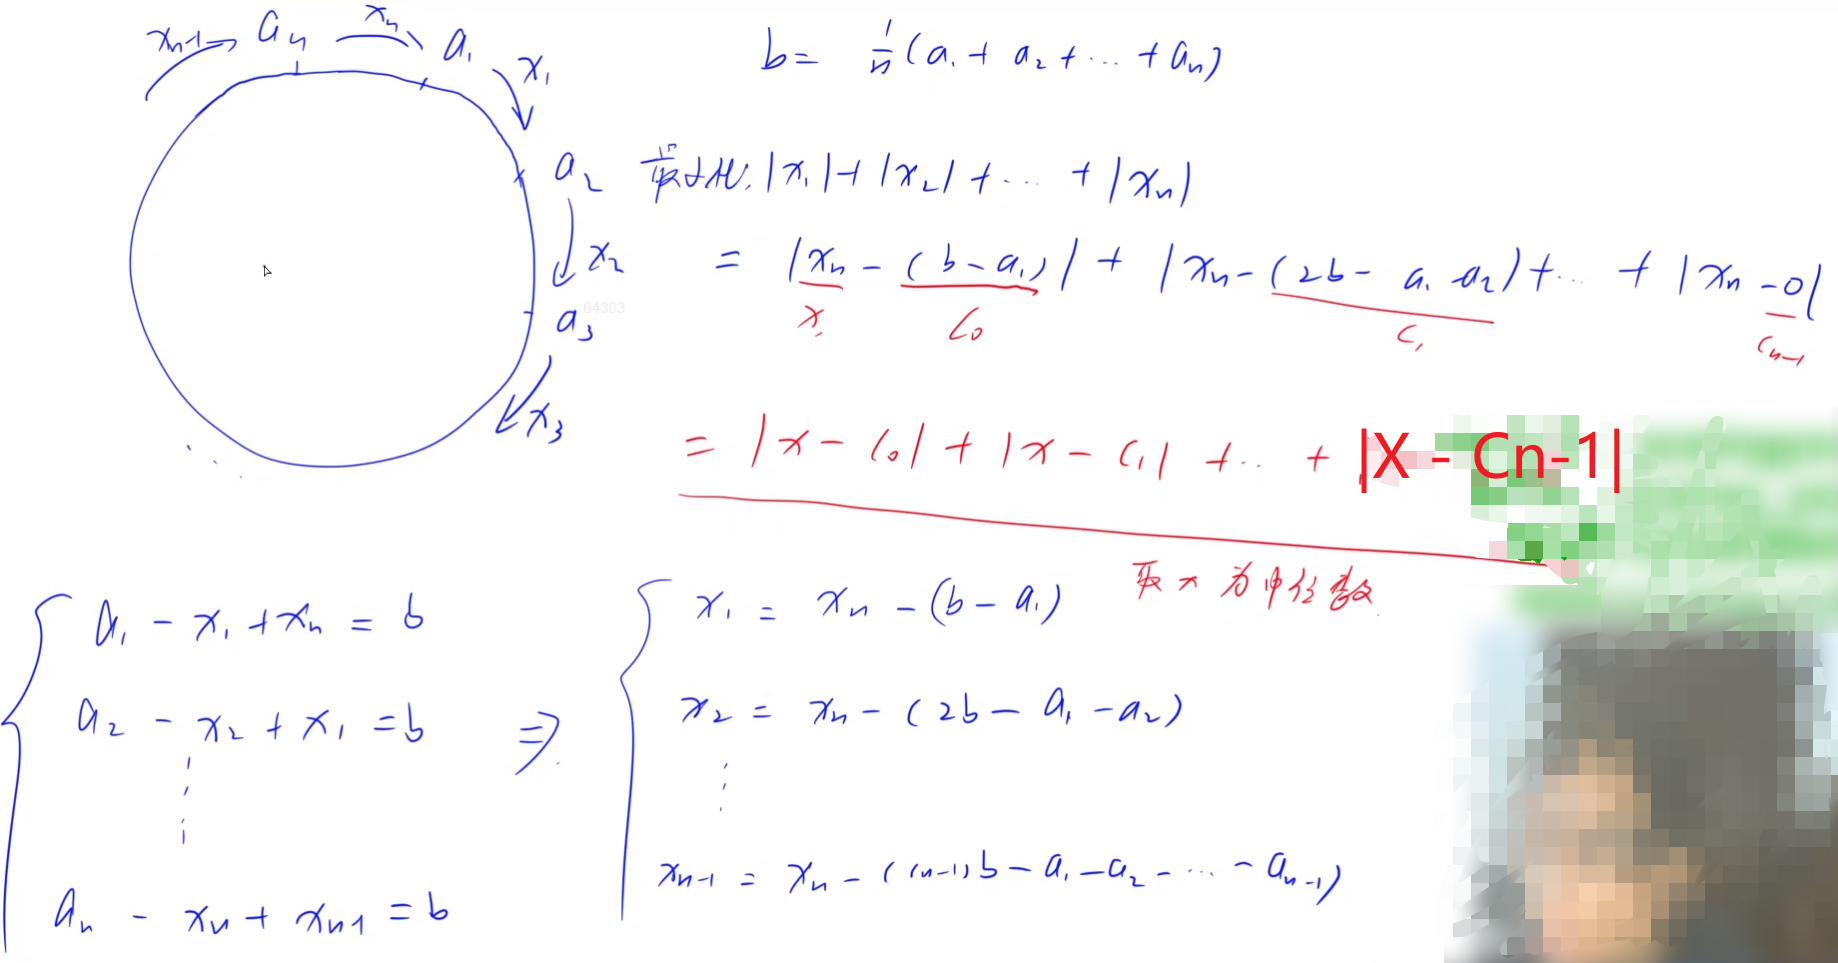 xn-1 an xn a1 x1
b = 1/n (a1 + a2 + ... + an)
a2 x2
最小化: |x1| + |x2| + ... + |xn|
= |xn - (b - a1)| + |xn - (2b - a1 - a2)| + ... + |xn - 0|
x C0 C1 Cn-1
64303
a3 x3
= |x - C0| + |x - C1| + ... + |X - Cn-1|
取 x 为中位数
a1 - x1 + xn = b
a2 - x2 + x1 = b
⋮
an - xn + xn-1 = b
⇒
x1 = xn - (b - a1)
x2 = xn - (2b - a1 - a2)
⋮
xn-1 = xn - ((n-1)b - a1 - a2 - ... - an-1)